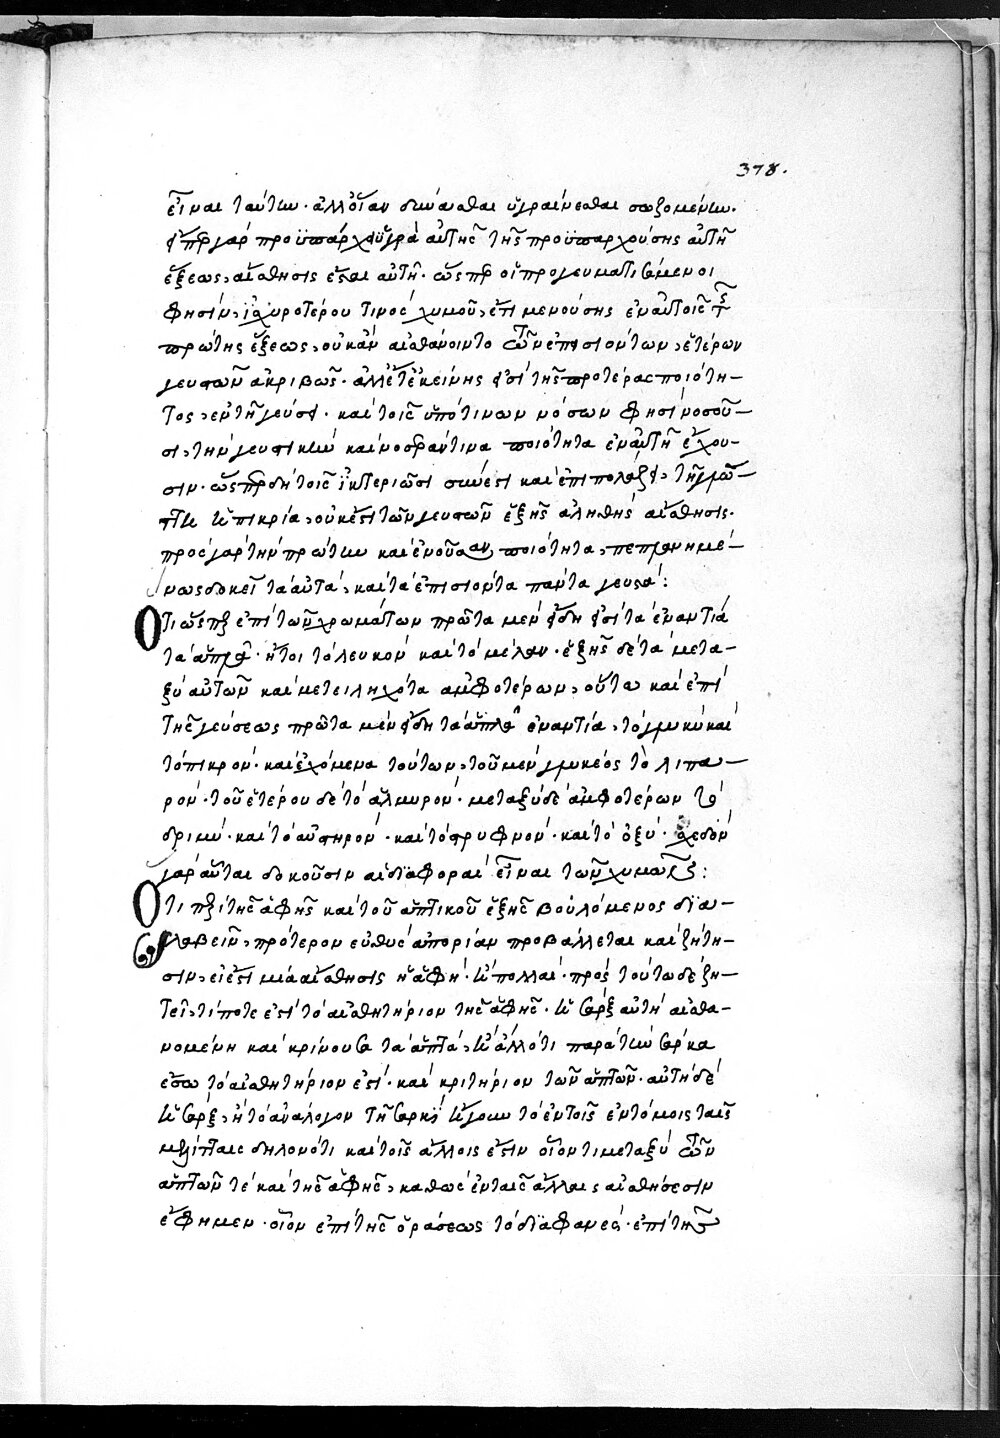 378.
εἶναι ταύτην. ἀλλ' οἵαν δύνασθαι ὑγραίνεσθαι σωζομένην.
γὰρ προϋπάρχει ὑγρὰ αὐτῆς τῆς προϋπαρχούσης αὐτῆ
ἕξεως, αἴσθησις ἔσται αὐτῆ. ὥσπερ οἱ προγευματισάμενοι
φησὶν, ἰσχυροτέρου τινὸς χυμοῦ, ἐπιμενούσης ἐν αὐτοῖς τῆς
πρώτης ἕξεως, οὐκ ἂν αἰσθάνοιντο τῶν ἐπεισιόντων, ἑτέρων
γευστῶν ἀκριβῶς. ἀλλ' ἔτ' ἐκείνης ἐστὶ τῆς προτέρας ποιότη-
τος, ἐν τῇ γεύσει. καὶ τοῖς ὑπό τινων νόσων φησὶ νοσοῦ-
σι, τὴν γευστικὴν καὶ νοσεράν τινα ποιότητα ἐν αὐτῇ ἔχου-
σιν. ὥσπερ δὴ τοῖς ἰκτεριῶσι σύνεστι καὶ ἐπιπολάζει, τῇ γλώ-
ττῃ ἡ πικρία, οὐκ ἔστι τῶν γευστῶν ἑξῆς ἀληθὴς αἴσθησις.
πρὸς γὰρ τὴν πρώτην καὶ ἐνοῦσαν ποιότητα, πεπλανημέ-
νως δοκεῖ τὰ αὐτὰ, καὶ τὰ ἐπεισιόντα πάντα γευστά:
Ὅτι ὥσπερ ἐπὶ τῶν χρωμάτων πρῶτα μὲν εἴδη εἰσὶ τὰ ἐναντία
τὰ ἁπλᾶ. ἤτοι τὸ λευκὸν καὶ τὸ μέλαν. ἑξῆς δὲ τὰ μετα-
ξὺ αὐτῶν καὶ μετειληχότα ἀμφοτέρων, οὕτω καὶ ἐπὶ
τῆς γεύσεως πρῶτα μὲν εἴδη τὰ ἁπλᾶ ἐναντία, τὸ γλυκὺ καὶ
τὸ πικρόν. καὶ ἐχόμενα τούτων, τοῦ μὲν γλυκέος τὸ λιπα-
ρόν. τοῦ ἑτέρου δὲ τὸ ἁλμυρόν. μεταξὺ δὲ ἀμφοτέρων τὸ
δριμύ. καὶ τὸ αὐστηρόν. καὶ τὸ στρυφνόν. καὶ τὸ ὀξύ. σχεδὸν
γὰρ αὗται δοκοῦσιν αἱ διαφοραὶ εἶναι τῶν χυμῶν:
Ὅτι περὶ τῆς ἁφῆς καὶ τοῦ ἁπτικοῦ ἑξῆς βουλόμενος δια-
λαβεῖν, πρότερον εὐθὺς ἀπορίαν προβάλλεται καὶ ζήτη-
σιν, εἰ ἔστι μία αἴσθησις ἡ ἁφή. ἢ πολλαί. πρὸς τούτω δὲ ζη-
τεῖ, τί ποτε ἐστὶ τὸ αἰσθητήριον τῆς ἁφῆς. ἡ σὰρξ αὐτὴ αἰσθα-
νομένη καὶ κρίνουσα τὰ ἁπτά, ἢ ἄλλό τι παρὰ τὴν σάρκα
ἔσω τὸ αἰσθητήριον ἐστί. καὶ κριτήριον τῶν ἁπτῶν. αὐτὴ δὲ
ἡ σὰρξ, ἢ τὸ ἀνάλογον τῇ σαρκὶ ἤγουν τὸ ἐν τοῖς ἐντόμοις ταῖς
μελίτταις δηλονότι καὶ τοῖς ἄλλοις ἐστὶν οἷόν τι μεταξὺ τῶν
ἁπτῶν τὲ καὶ τῆς ἁφῆς, καθὼς ἐν ταῖς ἄλλαις αἰσθήσεσιν
ἔφημεν. οἷον ἐπὶ τῆς ὁράσεως τὸ διαφανές. ἐπὶ τῆς